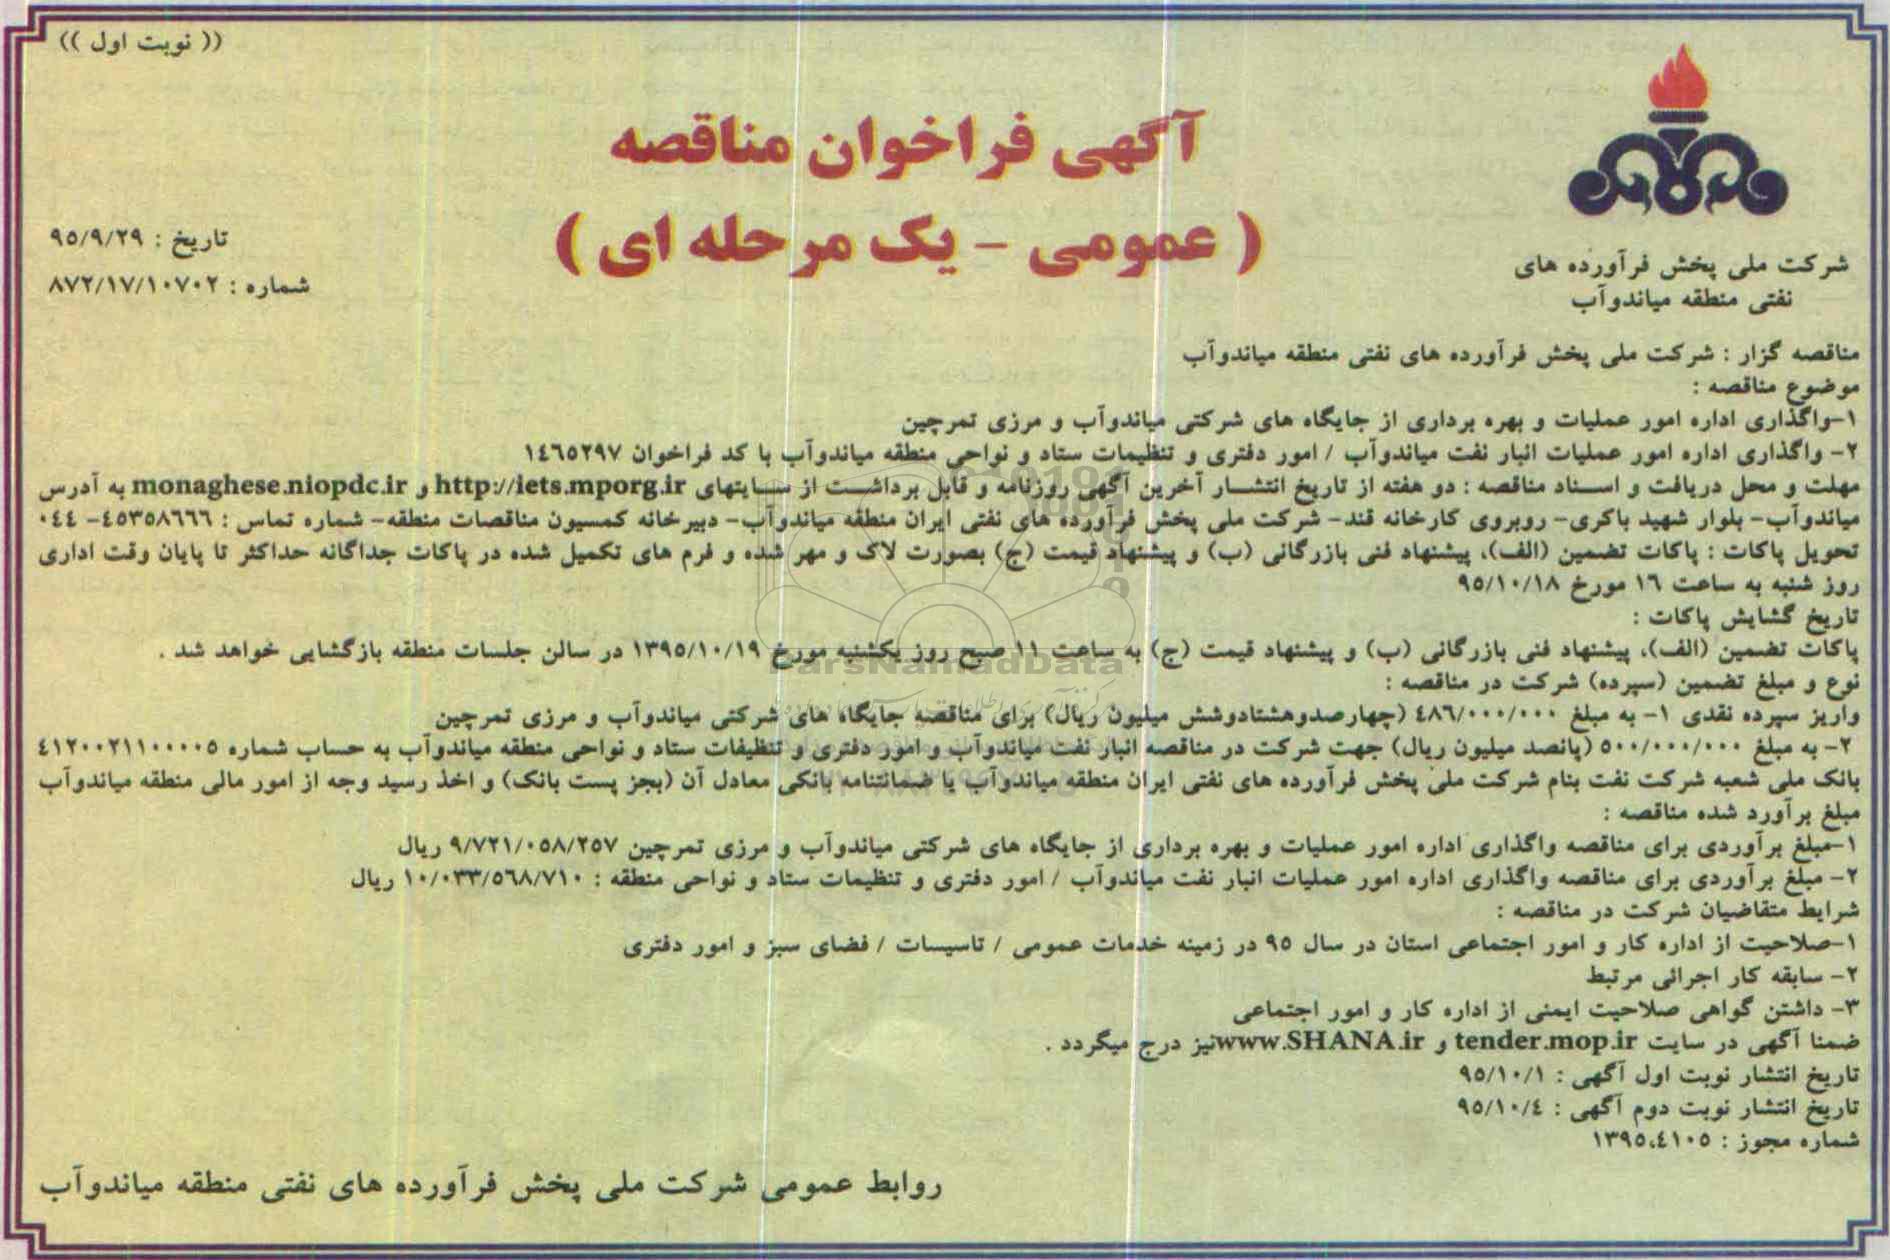 (( نوبت اول ))
آگهی فراخوان مناقصه
( عمومی - یک مرحله ای )
تاریخ : ۹۵/۹/۲۹
شماره : ۸۷۲/۱۷/۱۰۷۰۲
شرکت ملی پخش فرآورده های
نفتی منطقه میاندوآب
مناقصه گزار : شرکت ملی پخش فرآورده های نفتی منطقه میاندوآب
موضوع مناقصه :
۱-واگذاری اداره امور عملیات و بهره برداری از جایگاه های شرکتی میاندوآب و مرزی تمرچین
۲- واگذاری اداره امور عملیات انبار نفت میاندوآب / امور دفتری و تنظیمات ستاد و نواحی منطقه میاندوآب با کد فراخوان ۱٤٦٥۲۹۷
مهلت و محل دریافت و اسـناد مناقصه : دو هفته از تاریخ انتشـار آخرین آگهی روزنامه و قابل برداشـت از سـایتهای http://iets.mporg.ir و monaghese.niopdc.ir به آدرس
میاندوآب- بلوار شهید باکری- روبروی کارخانه قند- شرکت ملی پخش فرآورده های نفتی ایران منطقه میاندوآب- دبیرخانه کمسیون مناقصات منطقه- شماره تماس : ٤٥۳٥۸٦٦٦- ۰٤٤
تحویل پاکات : پاکات تضمین (الف)، پیشنهاد فنی بازرگانی (ب) و پیشنهاد قیمت (ج) بصورت لاک و مهر شده و فرم های تکمیل شده در پاکات جداگانه حداکثر تا پایان وقت اداری
روز شنبه به ساعت ۱٦ مورخ ۹۵/۱۰/۱۸
تاریخ گشایش پاکات :
پاکات تضمین (الف)، پیشنهاد فنی بازرگانی (ب) و پیشنهاد قیمت (ج) به ساعت ۱۱ صبح روز یکشنبه مورخ ۱۳۹۵/۱۰/۱۹ در سالن جلسات منطقه بازگشایی خواهد شد .
ParsNamadData
نوع و مبلغ تضمین (سپرده) شرکت در مناقصه :
واریز سپرده نقدی ۱- به مبلغ ٤۸٦/۰۰۰/۰۰۰ (چهارصدوهشتادوشش میلیون ریال) برای مناقصه جایگاه های شرکتی میاندوآب و مرزی تمرچین
۲- به مبلغ ٥۰۰/۰۰۰/۰۰۰ (پانصد میلیون ریال) جهت شرکت در مناقصه انبار نفت میاندوآب و امور دفتری و تنظیفات ستاد و نواحی منطقه میاندوآب به حساب شماره ٤۱۲۰۰۲۱۱۰۰۰۰٥
بانک ملی شعبه شرکت نفت بنام شرکت ملی پخش فرآورده های نفتی ایران منطقه میاندوآب یا ضمانتنامه بانکی معادل آن (بجز پست بانک) و اخذ رسید وجه از امور مالی منطقه میاندوآب
مبلغ برآورد شده مناقصه :
۱-مبلغ برآوردی برای مناقصه واگذاری اداره امور عملیات و بهره برداری از جایگاه های شرکتی میاندوآب و مرزی تمرچین ۹/۷۲۱/۰٥۸/۲٥۷ ریال
۲- مبلغ برآوردی برای مناقصه واگذاری اداره امور عملیات انبار نفت میاندوآب / امور دفتری و تنظیمات ستاد و نواحی منطقه : ۱۰/۰۳۳/٥٦۸/۷۱۰ ریال
شرایط متقاضیان شرکت در مناقصه :
۱-صلاحیت از اداره کار و امور اجتماعی استان در سال ۹٥ در زمینه خدمات عمومی / تاسیسات / فضای سبز و امور دفتری
۲- سابقه کار اجرائی مرتبط
۳- داشتن گواهی صلاحیت ایمنی از اداره کار و امور اجتماعی
ضمنا آگهی در سایت tender.mop.ir و www.SHANA.irنیز درج میگردد .
تاریخ انتشار نوبت اول آگهی : ۹٥/۱۰/۱
تاریخ انتشار نوبت دوم آگهی : ۹٥/۱۰/٤
شماره مجوز : ۱۳۹٥،٤۱۰٥
روابط عمومی شرکت ملی پخش فرآورده های نفتی منطقه میاندوآب